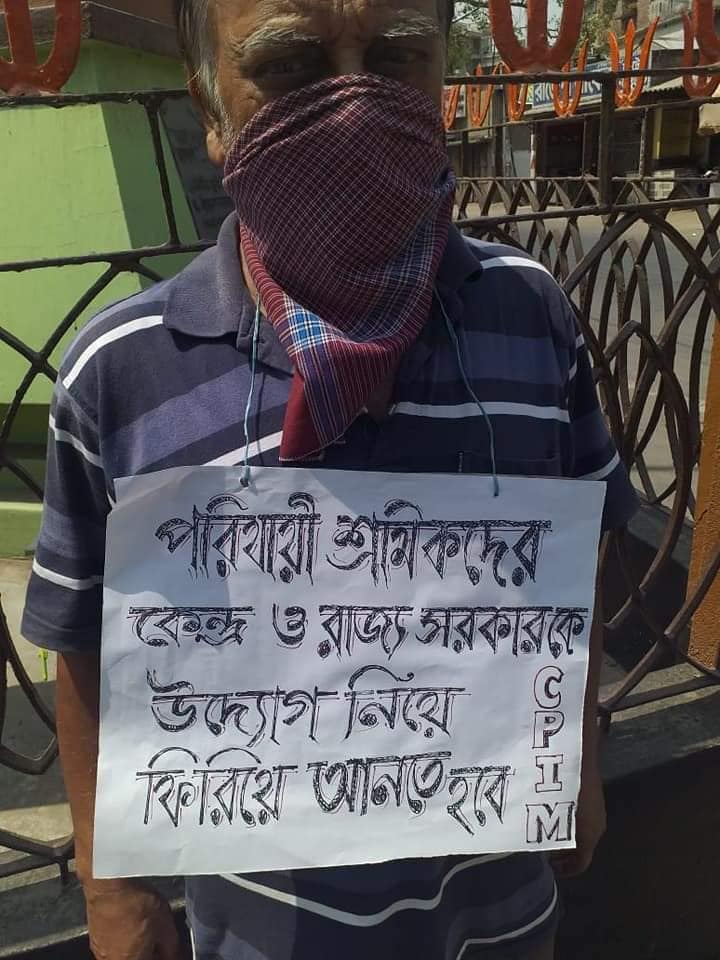 পরিযায়ী শ্রমিকদের
কেন্দ্র ও রাজ্য সরকারকে
উদ্যোগ নিয়ে
ফিরিয়ে আনতে হবে
CPIM